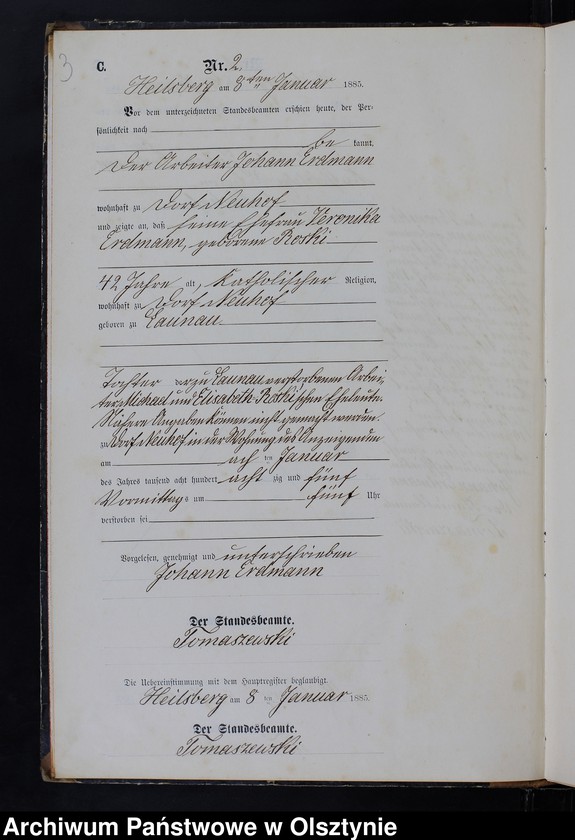 3
C. Nr. 2.
Heilsberg am 8ten Januar 1885.
Vor dem unterzeichneten Standesbeamten erschien heute, der Per-
sönlichkeit nach
be kannt,
Der Arbeiter Johann Erdmann
wohnhaft zu Dorf Neuhof
und zeigte an, daß seine Ehefrau Veronika
Erdmann, geborene Roski
42 Jahre alt, Katholischer Religion,
wohnhaft zu Dorf Neuhof
geboren zu Launau
Tochter der zu Launau verstorbenen Arbei-
ter Michael und Elisabeth Roski'schen Eheleute.
Nähere Angaben können nicht gemacht werden.
zu Dorf Neuhof in der Wohnung des Anzeigenden
am ten Januar
des Jahres tausend acht hundert acht zig und fünf
Vormittags um fünf Uhr
verstorben sei
Vorgelesen, genehmigt und unterschrieben
Johann Erdmann
Der Standesbeamte.
Tomaszewski
Die Uebereinstimmung mit dem Hauptregister beglaubigt.
Heilsberg am 8 ten Januar 1885.
Der Standesbeamte.
Tomaszewski
Archiwum Państwowe w Olsztynie